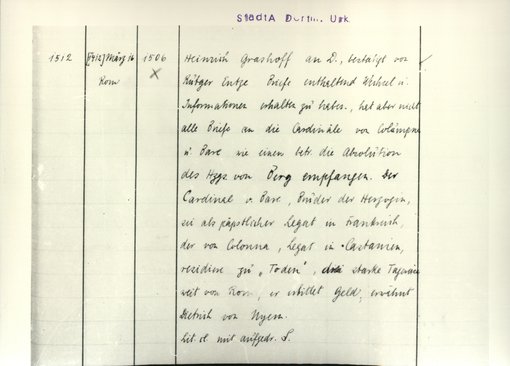 StadtA Dortm. Urk.
1512 [1412] März 16 1506 Heinrich Grashoff an D., bestätigt von
Rom × Rütger Entze Briefe enthaltend Wechsel u.
Informationen erhalten zu haben, hat aber nicht
alle Briefe an die Cardinäle von
u. Bare, wie einen betr. die Absolution
des Hzgs. von Berg empfangen. Der
Cardinal v. Bare, Bruder der Herzogin,
sei als päpstlicher Legat in Frankreich,
der von Colonna, Legat in Castanien,
residiere zu "Toden", drei starke Tagereisen
weit von Rom, er bittet Geld, erwähnt
Dietrich von
Lit. cl. mit aufgedr. S.